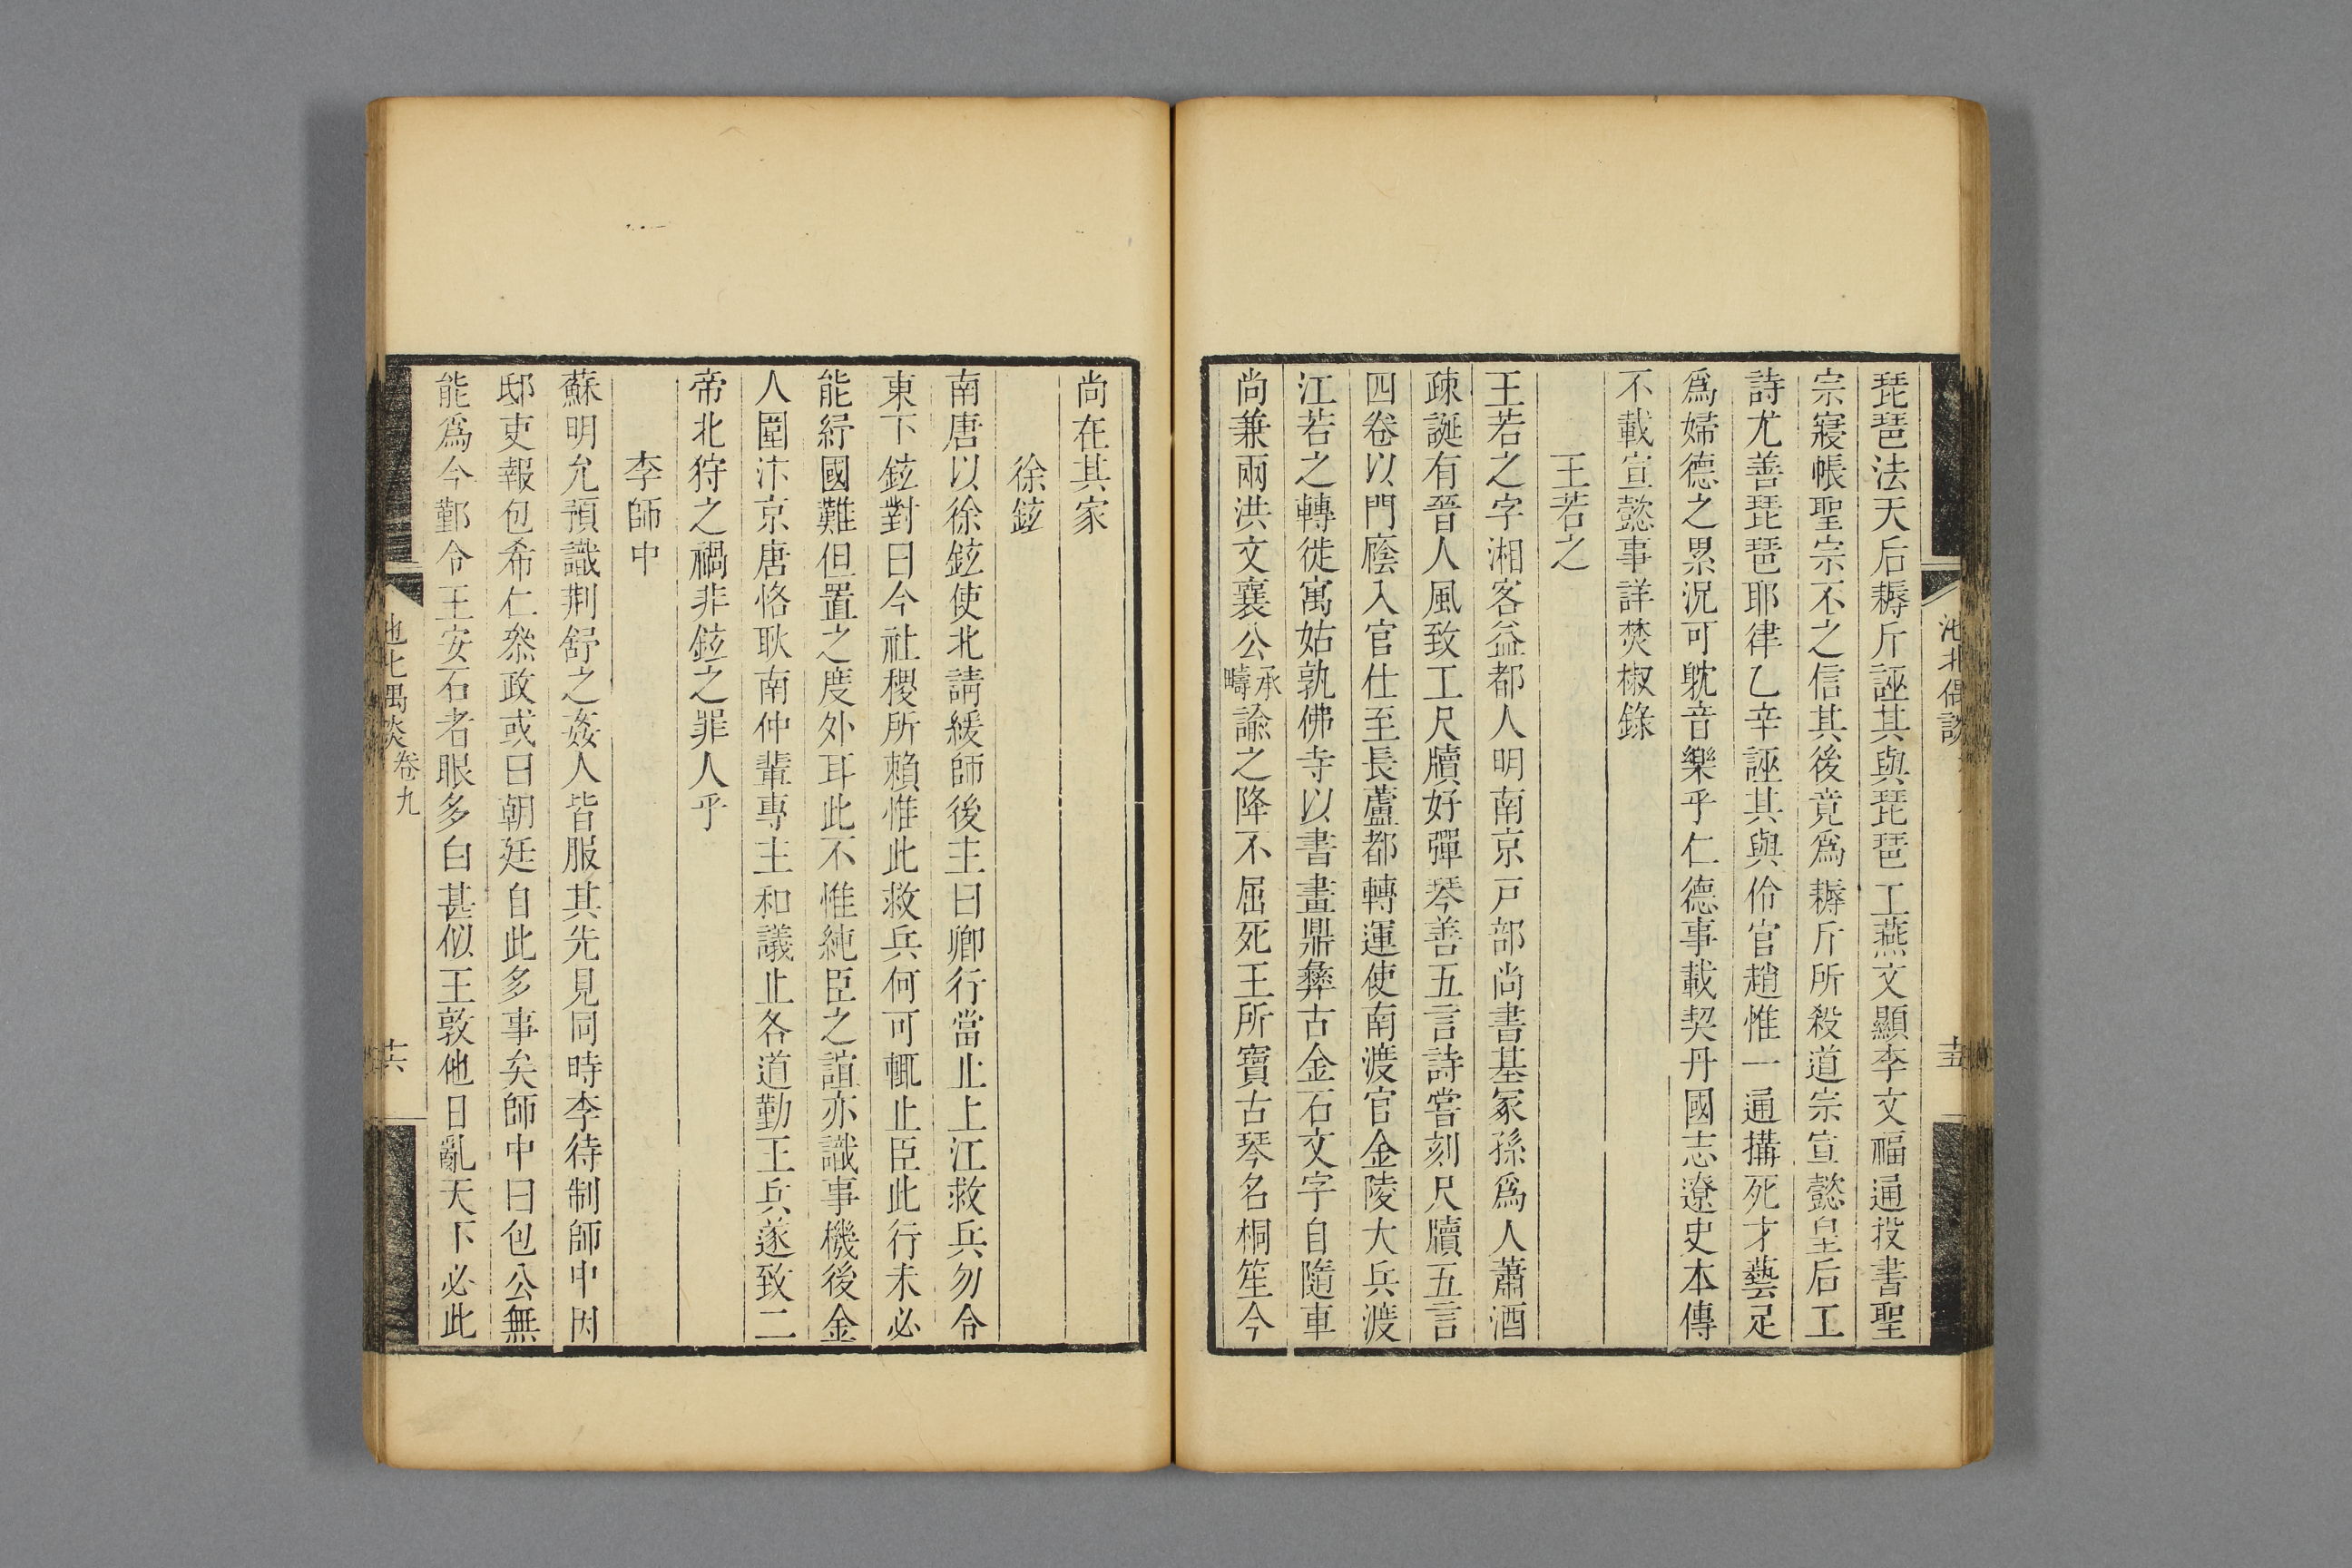 池北偶談
十五
琵琶法天后耨斤誣其與琵琶工燕文顯李文福通投書聖
宗寢帳聖宗不之信其後竟爲耨斤所殺道宗宣懿皇后工
詩尤善琵琶耶律乙辛誣其與伶官趙惟一通搆死才藝足
爲婦德之累況可躭音樂乎仁德事載契丹國志遼史本傳
不載宣懿事詳焚椒錄
王若之
王若之字湘客益都人明南京戸部尚書基冢孫爲人蕭酒
疎誕有晉人風致工尺牘好彈琴善五言詩嘗刻尺牘五言
四卷以門廕入官仕至長蘆都轉運使南渡官金陵大兵渡
江若之轉徙寓姑孰佛寺以書畫鼎彝古金石文字自隨車
尚兼兩洪文襄公承疇諭之降不屈死王所寶古琴名桐笙今
尚在其家
徐鉉
南唐以徐鉉使北請緩師後主曰卿行當止上江救兵勿令
東下鉉對曰今社稷所賴惟此救兵何可輒止臣此行未必
能紓國難但置之度外耳此不惟純臣之誼亦識事機後金
人圍汴京唐恪耿南仲輩專主和議止各道勤王兵遂致二
帝北狩之禍非鉉之罪人乎
李師中
蘇明允預識荆舒之姦人皆服其先見同時李待制師中因
邸吏報包希仁叅政或曰朝廷自此多事矣師中曰包公無
能爲今鄞令王安石者眼多白甚似王敦他日亂天下必此
池北偶談
卷九
十六